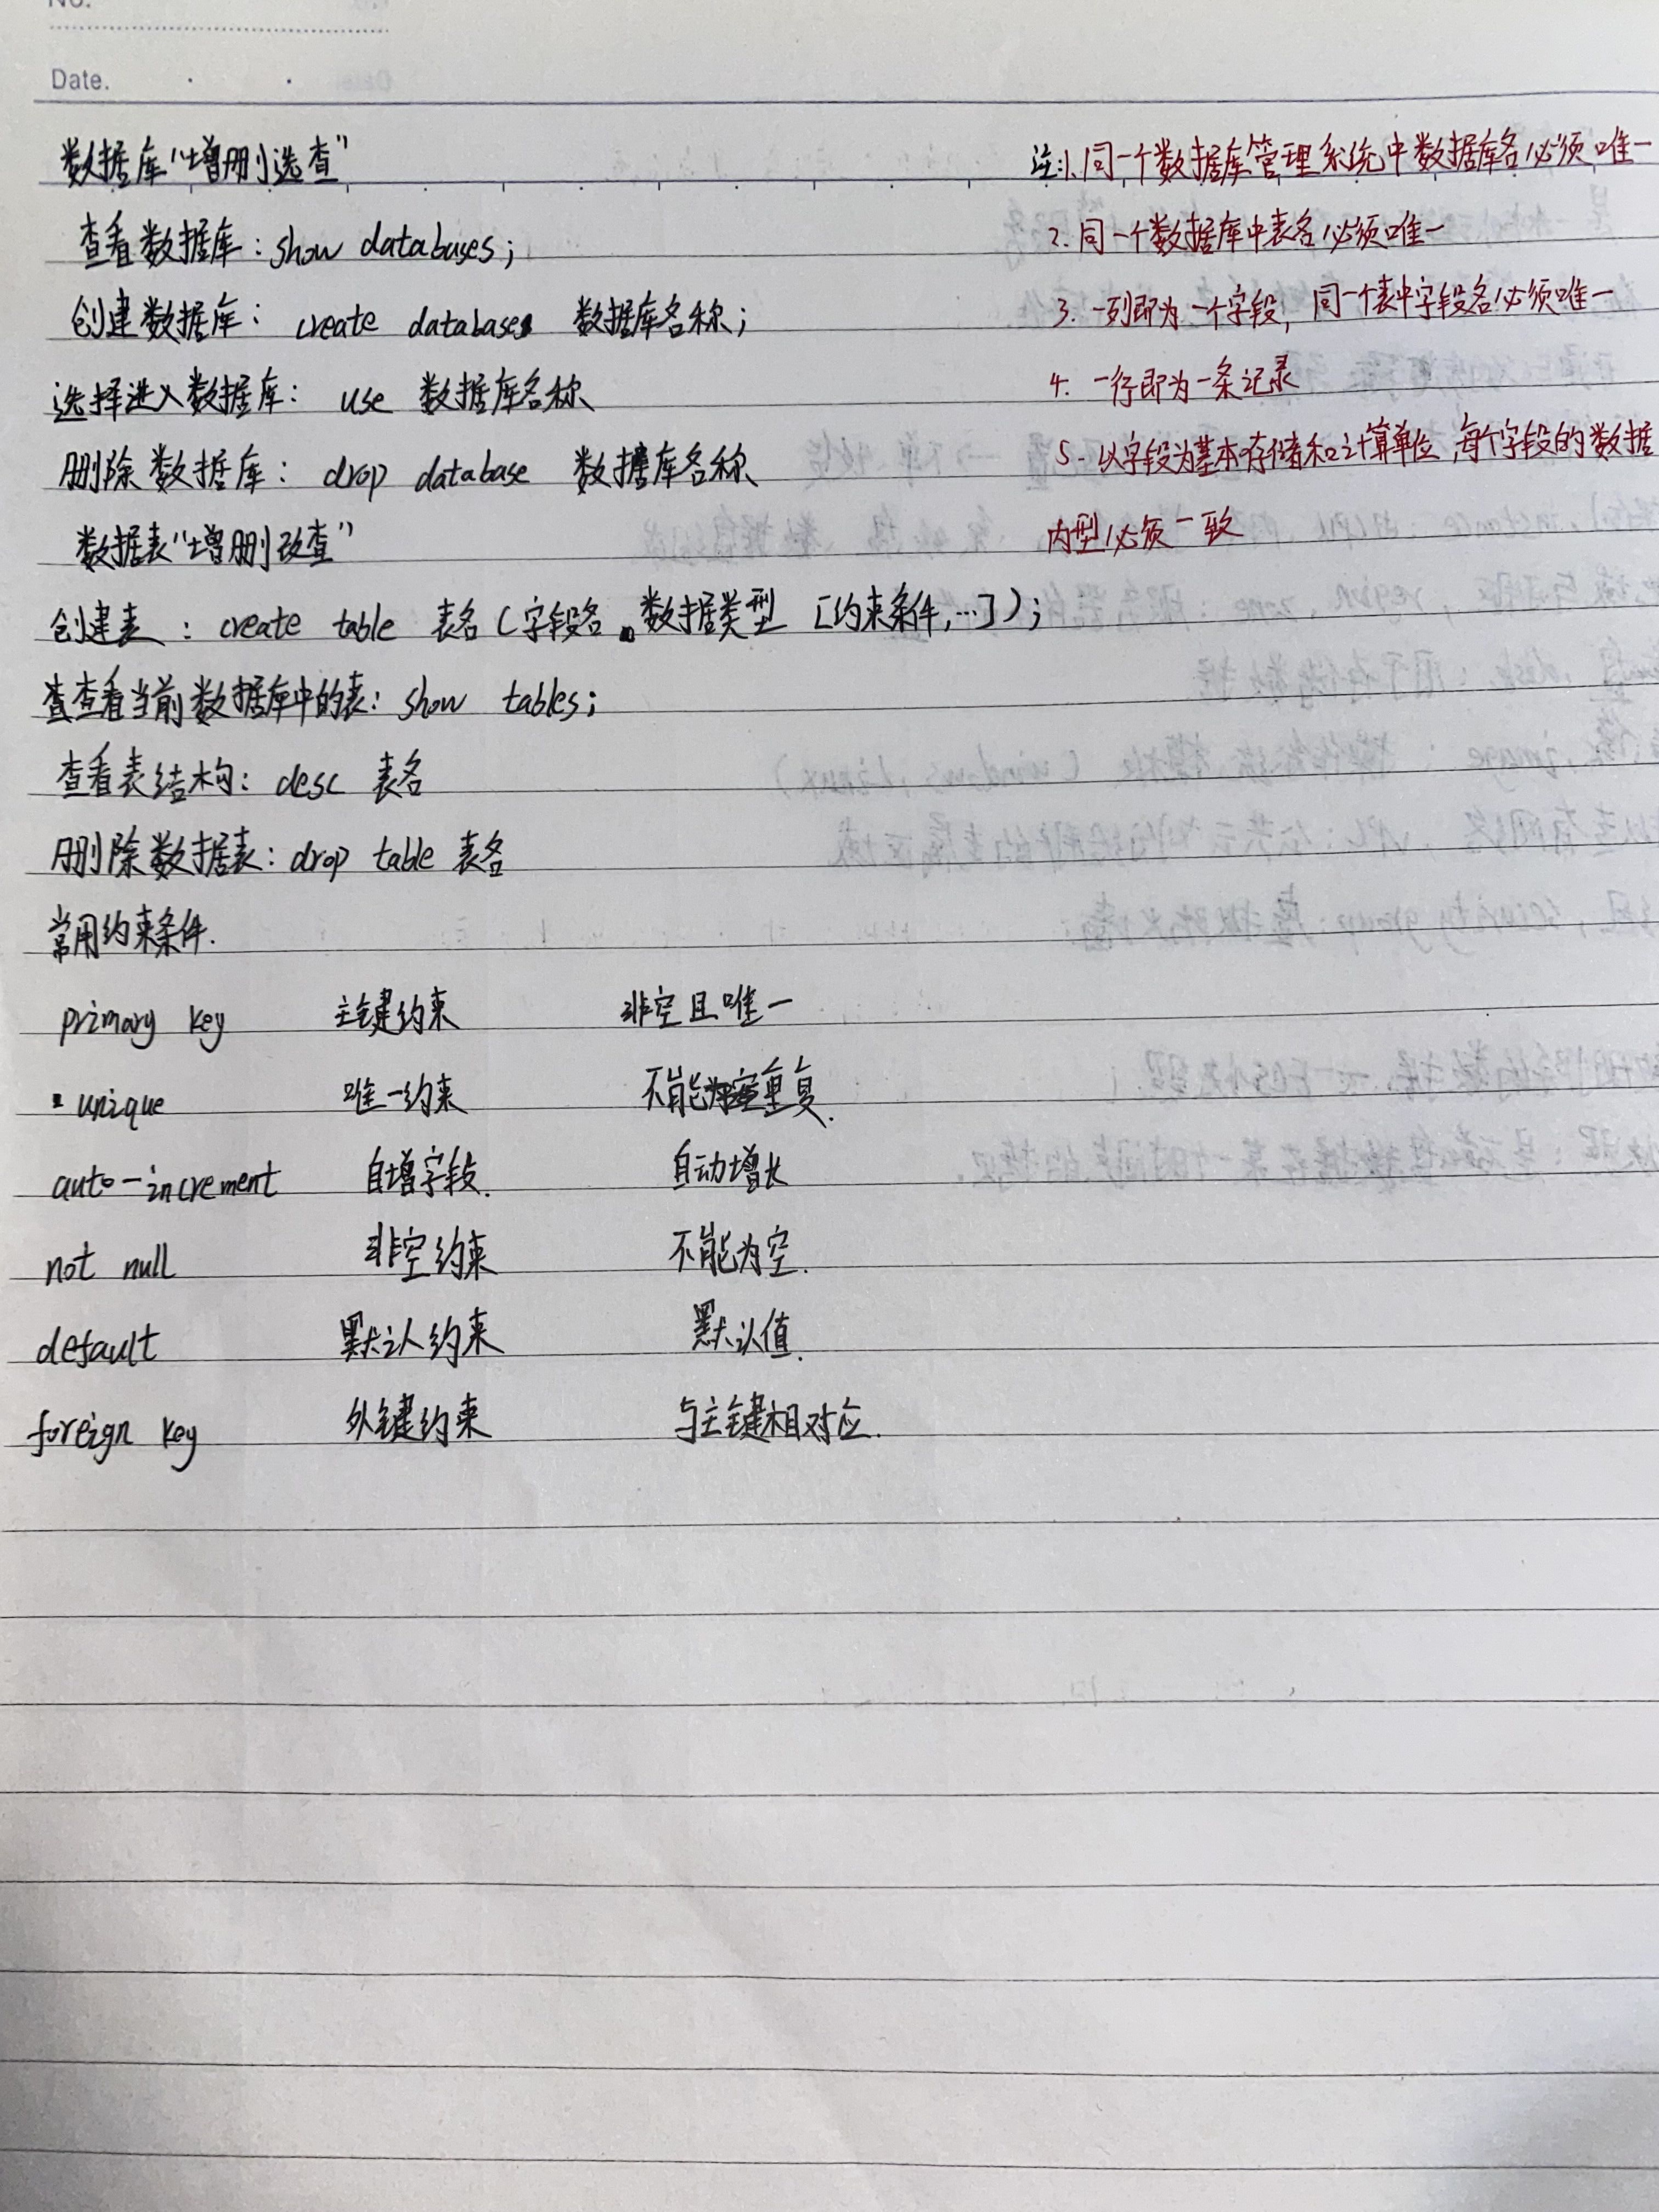 No.
Date.
数据库“增删选查”
查看数据库：show databases；
创建数据库： create database 数据库名称；
选择进入数据库： use 数据库名称
删除数据库： drop database 数据库名称
数据表“增删改查”
创建表 ： create table 表名（字段名 数据类型 [约束条件,…]）；
查查看当前数据库中的表：show tables；
查看表结构：desc 表名
删除数据表：drop table 表名
常用约束条件.
primary key 主键约束 非空且唯一
unique 唯一约束 不能重复.
auto-increment 自增字段. 自动增长
not null 非空约束 不能为空.
default 默认约束 默认值.
foreign key 外键约束 与主键相对应.
注:1.同一个数据库管理系统中数据库名必须唯一
2.同一个数据库中表名必须唯一
3. 一列即为一个字段，同一个表中字段名必须唯一
4. 一行即为一条记录
5. 以字段为基本存储和计算单位，每个字段的数据
内型必须一致